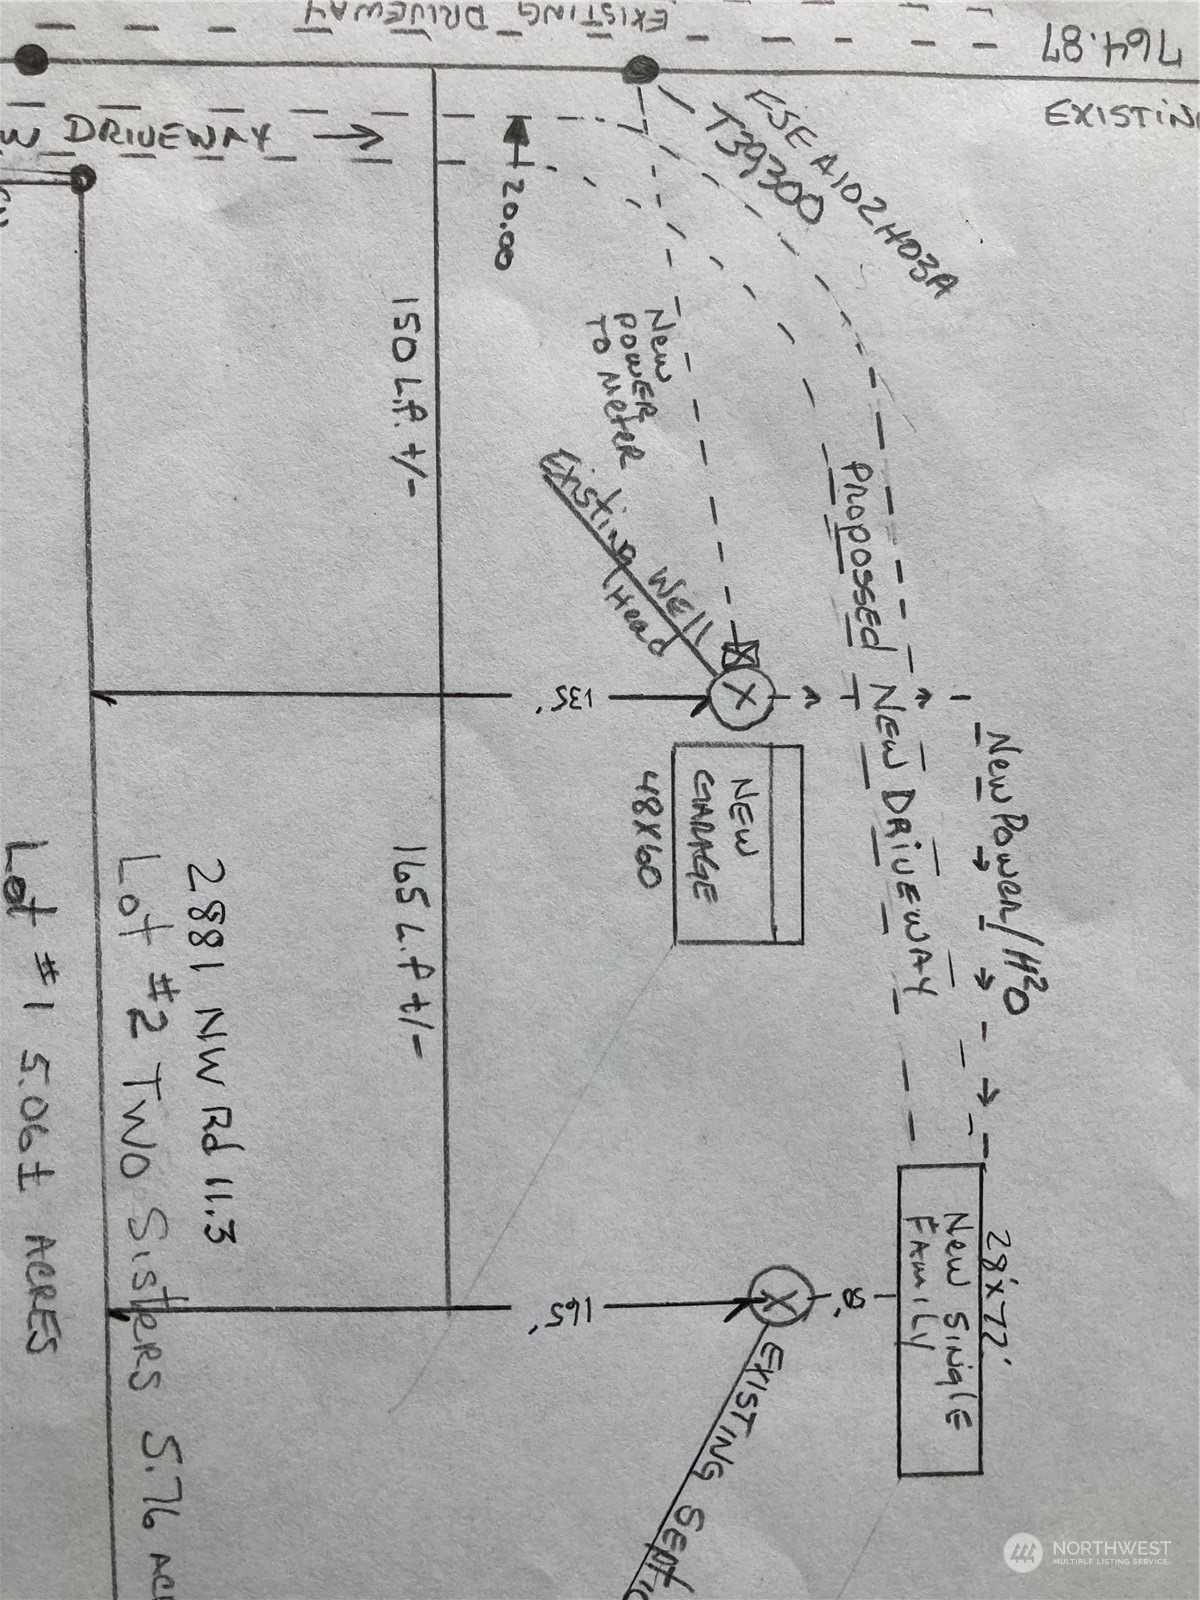 EXISTING DRIVEWAY
764.87
EXISTIN
W DRIVEWAY
FSE A102H03A
T39300
20.00
150 L.f. +/-
New
POWER
TO Meter
Existing Well
Head
PROPOSSED NEW DRIVEWAY
135'
New Power/H2O
NEW
GARAGE
48X60
165 L.f +/-
2881 NW Rd 11.3
Lot #2 Two Sisters 5.76 Acr
Lot #1 5.06± ACRES
28'x72'
New Single
Family
165'
50'
EXISTING SEPTIC
NORTHWEST
MULTIPLE LISTING SERVICE